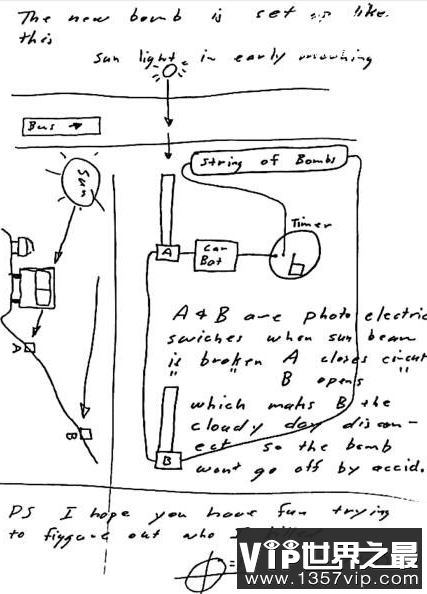 The new bomb is set up like
this
sun light in early morning
Bus
Sun
String of Bombs
Timer
A
Car
Bat
A
B
A & B are photo electric
swiches when sun beam
is broken A closes circut
" " B opens
which maks B the
cloudy day discon-
ect so the bomb
B
wont go off by accid.
PS I hope you have fun trying
to figgure out who I
=
VIP世界之最
www.1357vip.com